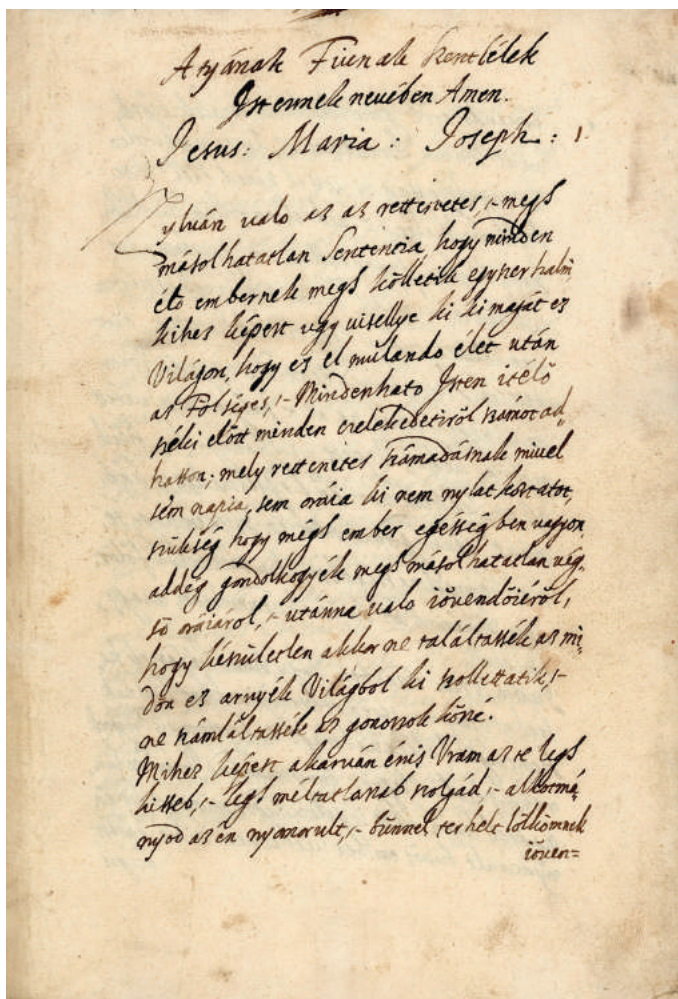 Atyának Fiúenak szentlélek
Istennek nevében Amen.
Jesus: Maria: Joseph: 1.
Nyluán valo az az rettenetes, 's megh
másolhatatlan Sententia hogy minden
élő embernek megh kölletik egyszer halni,
kihez képest ugy visellye ki ki magát ez
Világon, hogy ez el mulando élet után
az Fölséges, 's Mindenható Isten itélő
széki előtt minden cselekedetiről számot ad„
hasson; mely rettenetes számadásnak mivel
sem napia, sem oráia ki nem nylatkoztatot,
szükség hogy mégh ember egésségben vagyon,
addég gondolkogyék megh másolhatatlan vég„
ső oráiárol, 's utánna valo iövendőiéről,
hogy készületlen akkor ne találtassék az mi„
dőn ez arnyék Világbol ki szollettatik, 's
ne számláltassék az gonoszok közzé.
Mihez képest akarván énis Vram az te legh
kisseb, 's legh méltatlanab szolgád, 's alkotmá„
nyod az én nyomorult, 's bünnel terhelt lölkömnek
iöven=